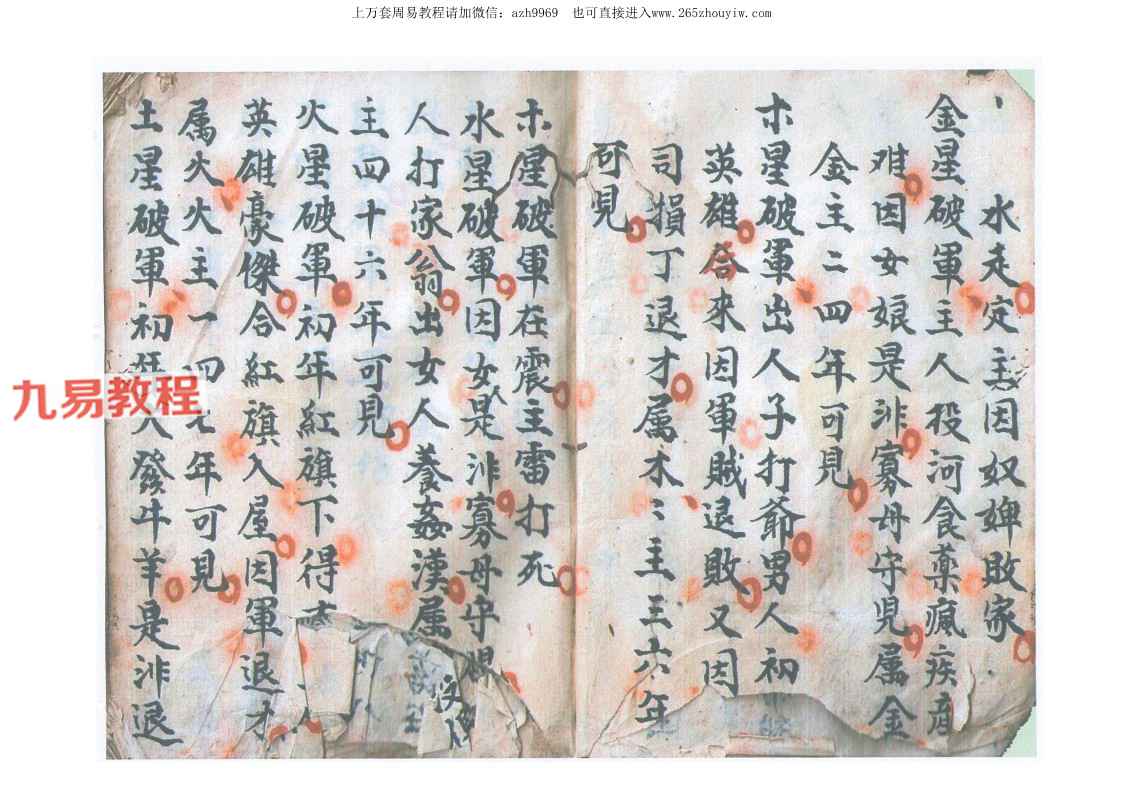 上万套周易教程请加微信：azh9969　也可直接进入www.265zhouyiw.com
水走定主因奴婢敗家
金星破軍主人投河食藥瘋疾產
难因女娘是非寡母守児属金
金主二四年可見
木星破軍出人子打爺男人初
英雄合來因軍賊退敗又因
司損丁退才属木〻主三六年
可見
木星破軍在震主雷打死
水星破軍因女是非寡母守
人打家翁出女人養姦漢属
主四十六年可見
火星破軍初年紅旗下得
英雄豪傑合紅旗入屋因軍退才
属火火主一四七年可見
土星破軍初發牛羊是非退
九易教程